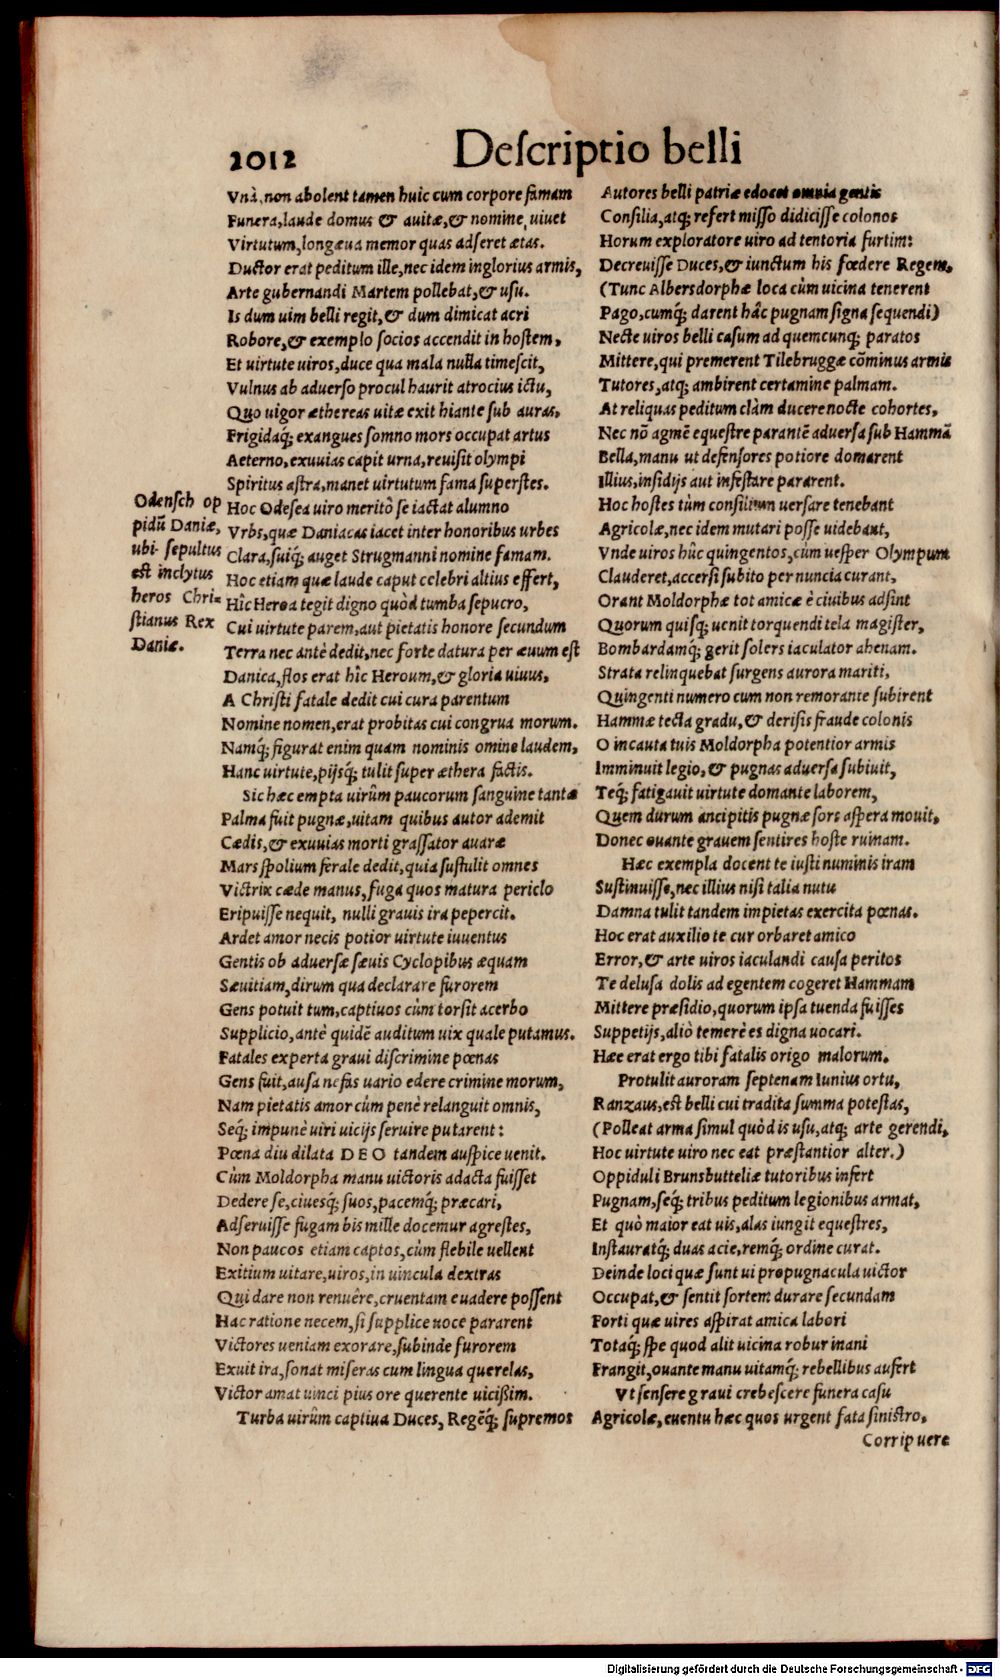 2012
Deſcriptio belli
Vnà, non abolent tamen huic cum corpore famam
Funera, laude domus & auitæ, & nomine, uiuet
Virtutum, longæua memor quas adſeret ætas.
Ductor erat peditum ille, nec idem inglorius armis,
Arte gubernandi Martem pollebat, & uſu.
Is dum uim belli regit, & dum dimicat acri
Robore, & exemplo ſocios accendit in hoſtem,
Et uirtute uiros, duce qua mala nulla timeſcit,
Vulnus ab aduerſo procul haurit atrocius ictu,
Quo uigor æthereas uitæ exit hiante ſub auras,
Frigidaq́; exangues ſomno mors occupat artus
Aeterno, exuuias capit urna, reuiſit olympi
Spiritus aſtra, manet uirtutum fama ſuperſtes.
Hoc Odeſea uiro meritò ſe iactat alumno
Vrbs, quæ Daniacas iacet inter honoribus urbes
Clara, ſuiq́; auget Strugmanni nomine famam.
Hoc etiam quæ laude caput celebri altius effert,
Hîc Heroa tegit digno quòd tumba ſepucro,
Cui uirtute parem, aut pietatis honore ſecundum
Terra nec antè dedit, nec forte datura per æuum eſt
Danica, flos erat hîc Heroum, & gloria uiuus,
A Chriſti fatale dedit cui cura parentum
Nomine nomen, erat probitas cui congrua morum.
Namq́; figurat enim quam nominis omine laudem,
Hanc uirtute, pijsq́; tulit ſuper æthera factis.
Sic hæc empta uirûm paucorum ſanguine tanta
Palma fuit pugnæ, uitam quibus autor ademit
Cædis, & exuuias morti graſſator auaræ
Mars ſpolium ferale dedit, quia ſuſtulit omnes
Victrix cæde manus, fuga quos matura periclo
Eripuiſſe nequit, nulli grauis ira pepercit.
Ardet amor necis potior uirtute iuuentus
Gentis ob aduerſæ ſæuis Cyclopibus æquam
Sæuitiam, dirum qua declarare furorem
Gens potuit tum, captiuos cùm torſit acerbo
Supplicio, antè quidẽ auditum uix quale putamus.
Fatales experta graui diſcrimine pœnas
Gens fuit, auſa nefas uario edere crimine morum,
Nam pietatis amor cùm penè relanguit omnis,
Seq́; impunè uiri uicijs ſeruire putarent:
Pœna diu dilata DEO tandem auſpice uenit.
Cùm Moldorpha manu uictoris adacta fuiſſet
Dedere ſe, ciuesq́; ſuos, pacemq́; præcari,
Adſeruiſſe fugam bis mille docemur agreſtes,
Non paucos etiam captos, cùm flebile uellent
Exitium uitare, uiros, in uincula dextras
Qui dare non renuêre, cruentam euadere poſſent
Hac ratione necem, ſi ſupplice uoce pararent
Victores ueniam exorare, ſubinde furorem
Exuit ira, ſonat miſeras cum lingua querelas,
Victor amat uinci pius ore querente uiciſsim.
Turba uirûm captiua Duces, Regẽq́; ſupremos
Odenſch op
pidũ Daniæ,
ubi ſepultus
eſt inclytus
heros Chri-
ſtianus Rex
Daniæ.
Autores belli patriæ edocet omnia gentis
Conſilia, atq; refert miſſo didiciſſe colonos
Horum exploratore uiro ad tentoria furtim:
Decreuiſſe Duces, & iunctum his fœdere Regem,
(Tunc Albersdorphæ loca cùm uicina tenerent
Pago, cumq́; darent hâc pugnam ſigna ſequendi)
Necte uiros belli caſum ad quemcunq; paratos
Mittere, qui premerent Tilebruggæ cõminus armis
Tutores, atq; ambirent certamine palmam.
At reliquas peditum clàm ducere nocte cohortes,
Nec nõ agmẽ equeſtre parantẽ aduerſa ſub Hammã
Bella, manu ut defenſores potiore domarent
Illius, inſidijs aut infeſtare pararent.
Hoc hoſtes tùm conſilium uerſare tenebant
Agricolæ, nec idem mutari poſſe uidebant,
Vnde uiros hûc quingentos, cùm ueſper Olympum
Clauderet, accerſi ſubito per nuncia curant,
Orant Moldorphæ tot amicæ è ciuibus adſint
Quorum quiſq; uenit torquendi tela magiſter,
Bombardamq́; gerit ſolers iaculator ahenam.
Strata relinquebat ſurgens aurora mariti,
Quingenti numero cum non remorante ſubirent
Hammæ tecta gradu, & deriſis fraude colonis
O incauta tuis Moldorpha potentior armis
Imminuit legio, & pugnas aduerſa ſubiuit,
Teq́; fatigauit uirtute domante laborem,
Quem durum ancipitis pugnæ ſors aſpera mouit,
Donec ouante grauem ſentires hoſte ruinam.
Hæc exempla docent te iuſti numinis iram
Suſtinuiſſe, nec illius niſi talia nutu
Damna tulit tandem impietas exercita pœnas.
Hoc erat auxilio te cur orbaret amico
Error, & arte uiros iaculandi cauſa peritos
Te deluſa dolis ad egentem cogeret Hammam
Mittere præſidio, quorum ipſa tuenda fuiſſes
Suppetijs, aliò temerè es digna uocari.
Hæc erat ergo tibi fatalis origo malorum.
Protulit auroram ſeptenam Iunius ortu,
Ranzaus, eſt belli cui tradita ſumma poteſtas,
(Polleat arma ſimul quòd is uſu, atq; arte gerendi,
Hoc uirtute uiro nec eat præſtantior alter.)
Oppiduli Brunsbutteliæ tutoribus infert
Pugnam, ſeq́; tribus peditum legionibus armat,
Et quò maior eat uis, alas iungit equeſtres,
Inſtauratq́; duas acie, remq́; ordine curat.
Deinde loci quæ ſunt ui propugnacula uictor
Occupat, & ſentit ſortem durare ſecundam
Forti quæ uires aſpirat amica labori
Totaq́; ſpe quod alit uicina robur inani
Frangit, ouante manu uitamq́; rebellibus aufert
Vt ſenſere graui crebeſcere funera caſu
Agricolæ, euentu hæc quos urgent fata ſiniſtro,
Corripuere
Digitalisierung gefördert durch die Deutsche Forschungsgemeinschaft - DFG